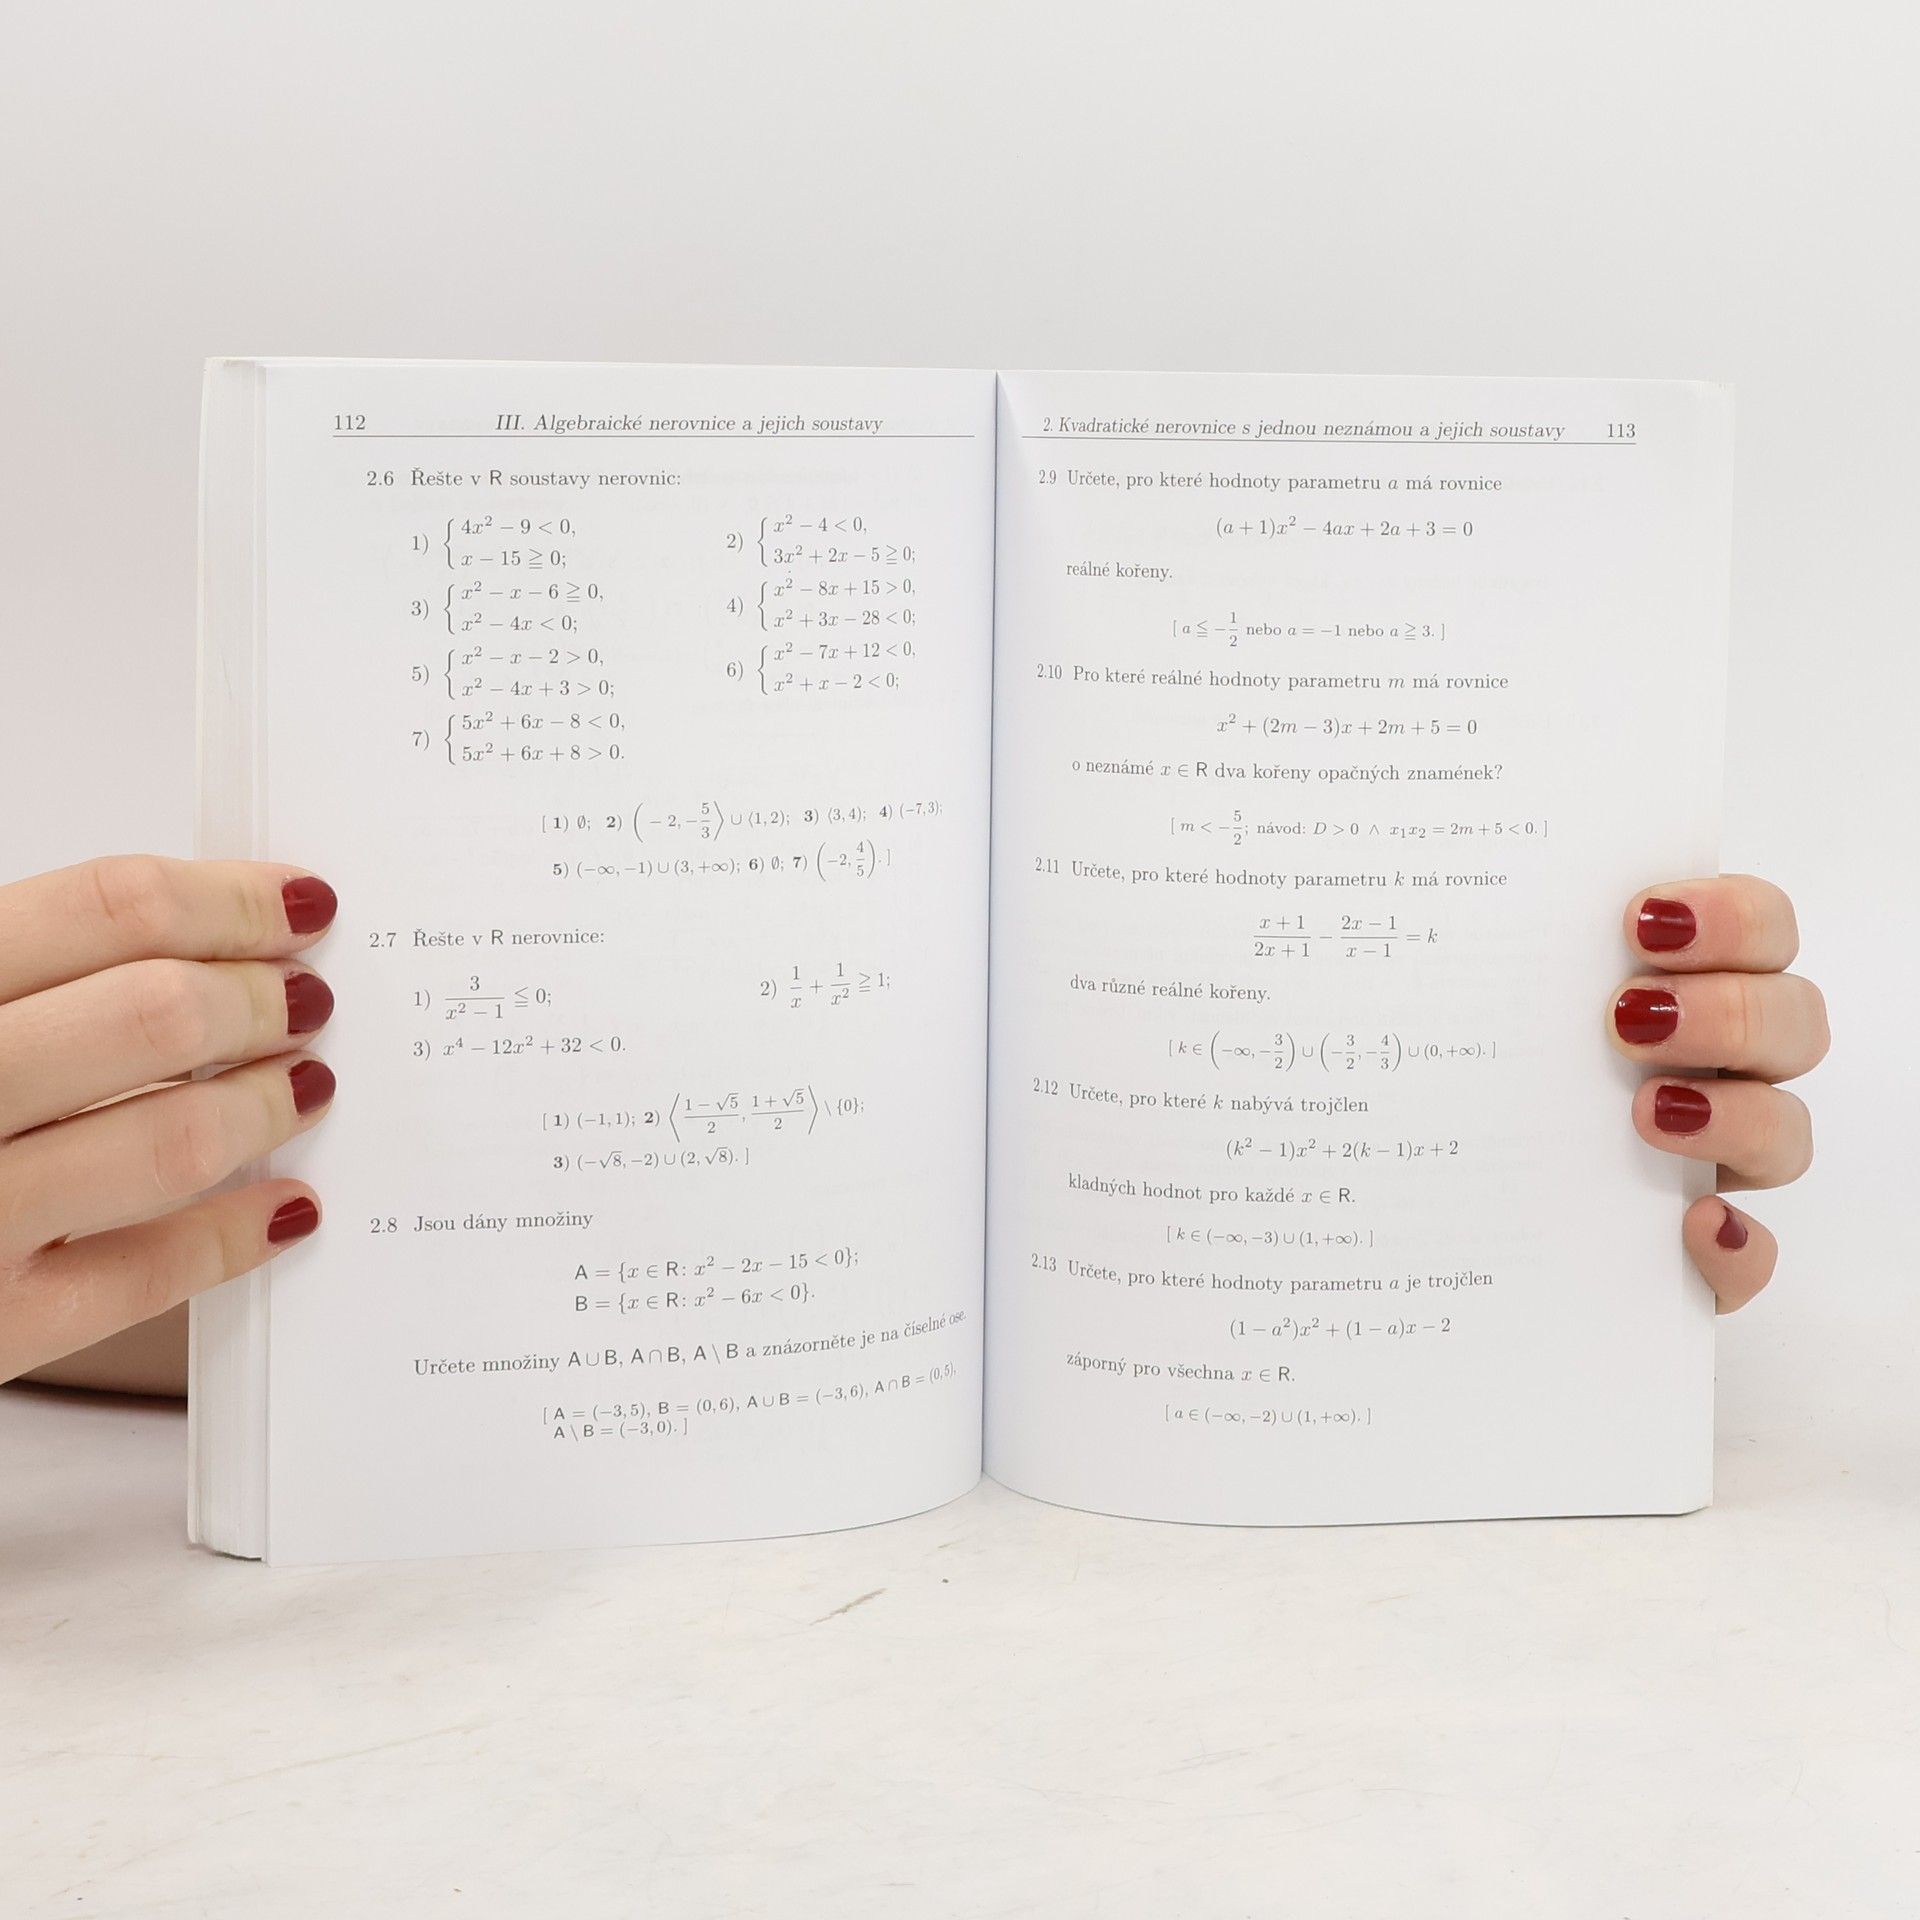 112 III. Algebraické nerovnice a jejich soustavy
2.6 Řešte v R soustavy nerovnic:
1) { 4x² − 9 < 0, x − 15 ≧ 0; 2) { x² − 4 < 0, 3x² + 2x − 5 ≧ 0;
3) { x² − x − 6 ≧ 0, x² − 4x < 0; 4) { x² − 8x + 15 > 0, x² + 3x − 28 < 0;
5) { x² − x − 2 > 0, x² − 4x + 3 > 0; 6) { x² − 7x + 12 < 0, x² + x − 2 < 0;
7) { 5x² + 6x − 8 < 0, 5x² + 6x + 8 > 0.
[ 1) ∅; 2) (−2, −5/3⟩ ∪ ⟨1, 2); 3) ⟨3, 4); 4) (−7, 3);
5) (−∞, −1) ∪ (3, +∞); 6) ∅; 7) (−2, 4/5). ]
2.7 Řešte v R nerovnice:
1) 3/(x² − 1) ≦ 0; 2) 1/x + 1/x² ≧ 1;
3) x⁴ − 12x² + 32 < 0.
[ 1) (−1, 1); 2) ⟨(1 − √5)/2, (1 + √5)/2⟩ \ {0};
3) (−√8, −2) ∪ (2, √8). ]
2.8 Jsou dány množiny
A = {x ∈ R: x² − 2x − 15 < 0};
B = {x ∈ R: x² − 6x < 0}.
Určete množiny A ∪ B, A ∩ B, A \ B a znázorněte je na číselné ose.
[ A = (−3, 5), B = (0, 6), A ∪ B = (−3, 6), A ∩ B = (0, 5),
A \ B = (−3, 0⟩. ]
2. Kvadratické nerovnice s jednou neznámou a jejich soustavy 113
2.9 Určete, pro které hodnoty parametru a má rovnice
(a + 1)x² − 4ax + 2a + 3 = 0
reálné kořeny.
[ a ≦ −1/2 nebo a = −1 nebo a ≧ 3. ]
2.10 Pro které reálné hodnoty parametru m má rovnice
x² + (2m − 3)x + 2m + 5 = 0
o neznámé x ∈ R dva kořeny opačných znamének?
[ m < −5/2; návod: D > 0 ∧ x₁x₂ = 2m + 5 < 0. ]
2.11 Určete, pro které hodnoty parametru k má rovnice
(x + 1)/(2x + 1) − (2x − 1)/(x − 1) = k
dva různé reálné kořeny.
[ k ∈ (−∞, −3/2) ∪ (−3/2, −4/3) ∪ (0, +∞). ]
2.12 Určete, pro které k nabývá trojčlen
(k² − 1)x² + 2(k − 1)x + 2
kladných hodnot pro každé x ∈ R.
[ k ∈ (−∞, −3) ∪ (1, +∞). ]
2.13 Určete, pro které hodnoty parametru a je trojčlen
(1 − a²)x² + (1 − a)x − 2
záporný pro všechna x ∈ R.
[ a ∈ (−∞, −2) ∪ (1, +∞). ]